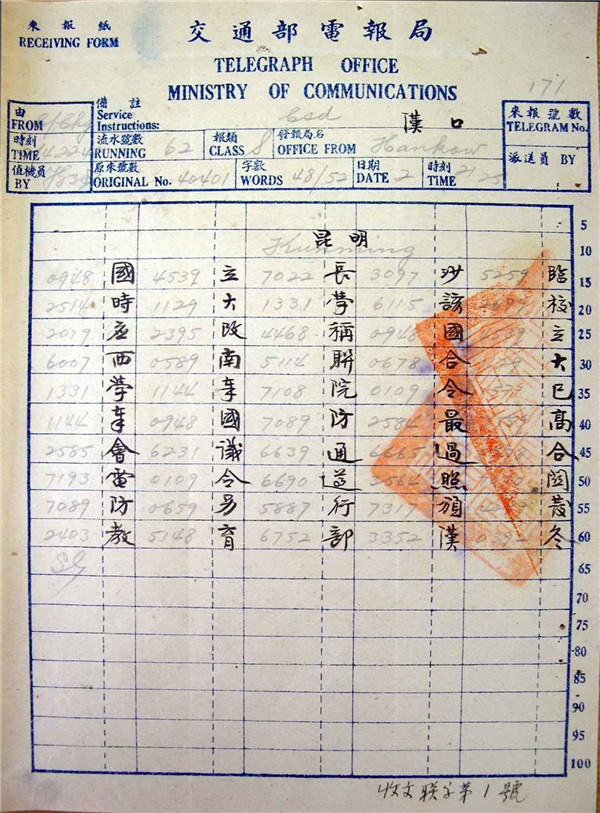 來報紙
RECEIVING FORM
交通部電報局
TELEGRAPH OFFICE
MINISTRY OF COMMUNICATIONS
171
由
FROM
備註
Service
Instructions:
漢口
來報號數
TELEGRAM No.
時刻
TIME
流水號數
RUNNING 62
報類
CLASS S
發報局名
OFFICE FROM Hankow
派送員 BY
值機員
BY
原來號數
ORIGINAL No. 40401
字數
WORDS 48/52
日期
DATE 2
時刻
TIME 21 25
5
昆明
Kunming
10
0948 國 4539 立 7022 長 3097 沙 5259 臨
15
2514 時 1129 大 1331 學 6115 該 校
20
2019 應 2395 改 4468 稱 0948 國 立
25
6007 西 0589 南 5114 聯 0678 合 大
30
1331 學 1144 奉 7108 院 0109 令 已
35
1144 奉 0948 國 7089 防 2584 最 高
40
2585 會 6231 議 6639 通 6665 過 合
45
7193 電 0109 令 6690 遵 3564 照 關
50
7089 防 0659 另 5887 行 7317 頒 發
55
2403 教 5148 育 6752 部 3352 漢 冬
60
65
70
75
80
85
90
95
100
收文聯字第1號